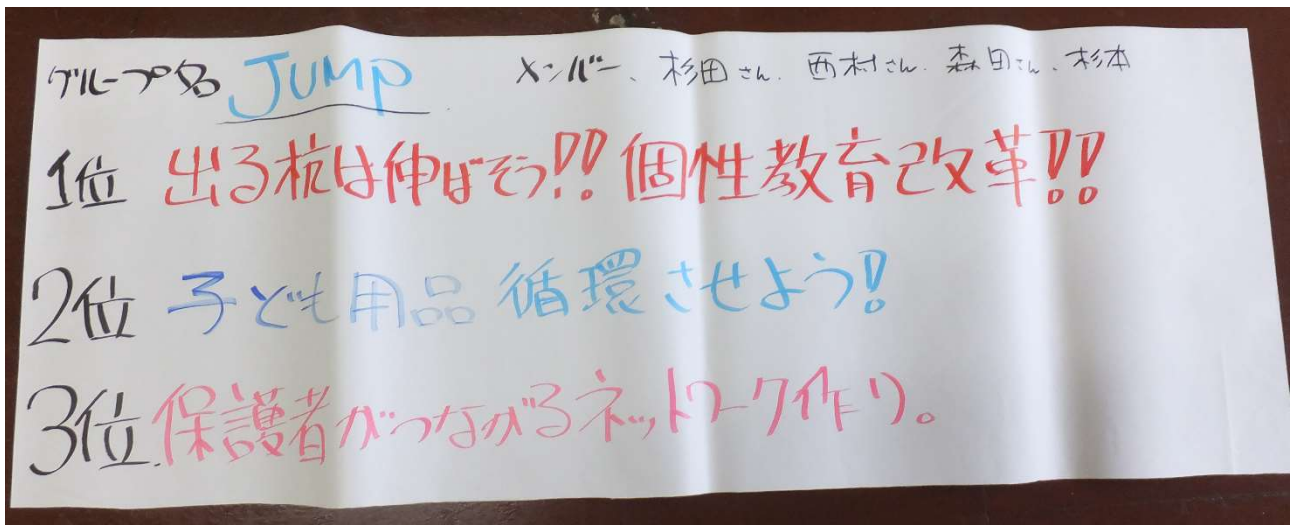 グループ名 JUMP メンバー、杉田さん、西村さん、森田さん、杉本
1位 出る杭は伸ばそう!! 個性教育改革!!
2位 子ども用品 循環させよう!
3位.保護者がつながるネットワーク作り。